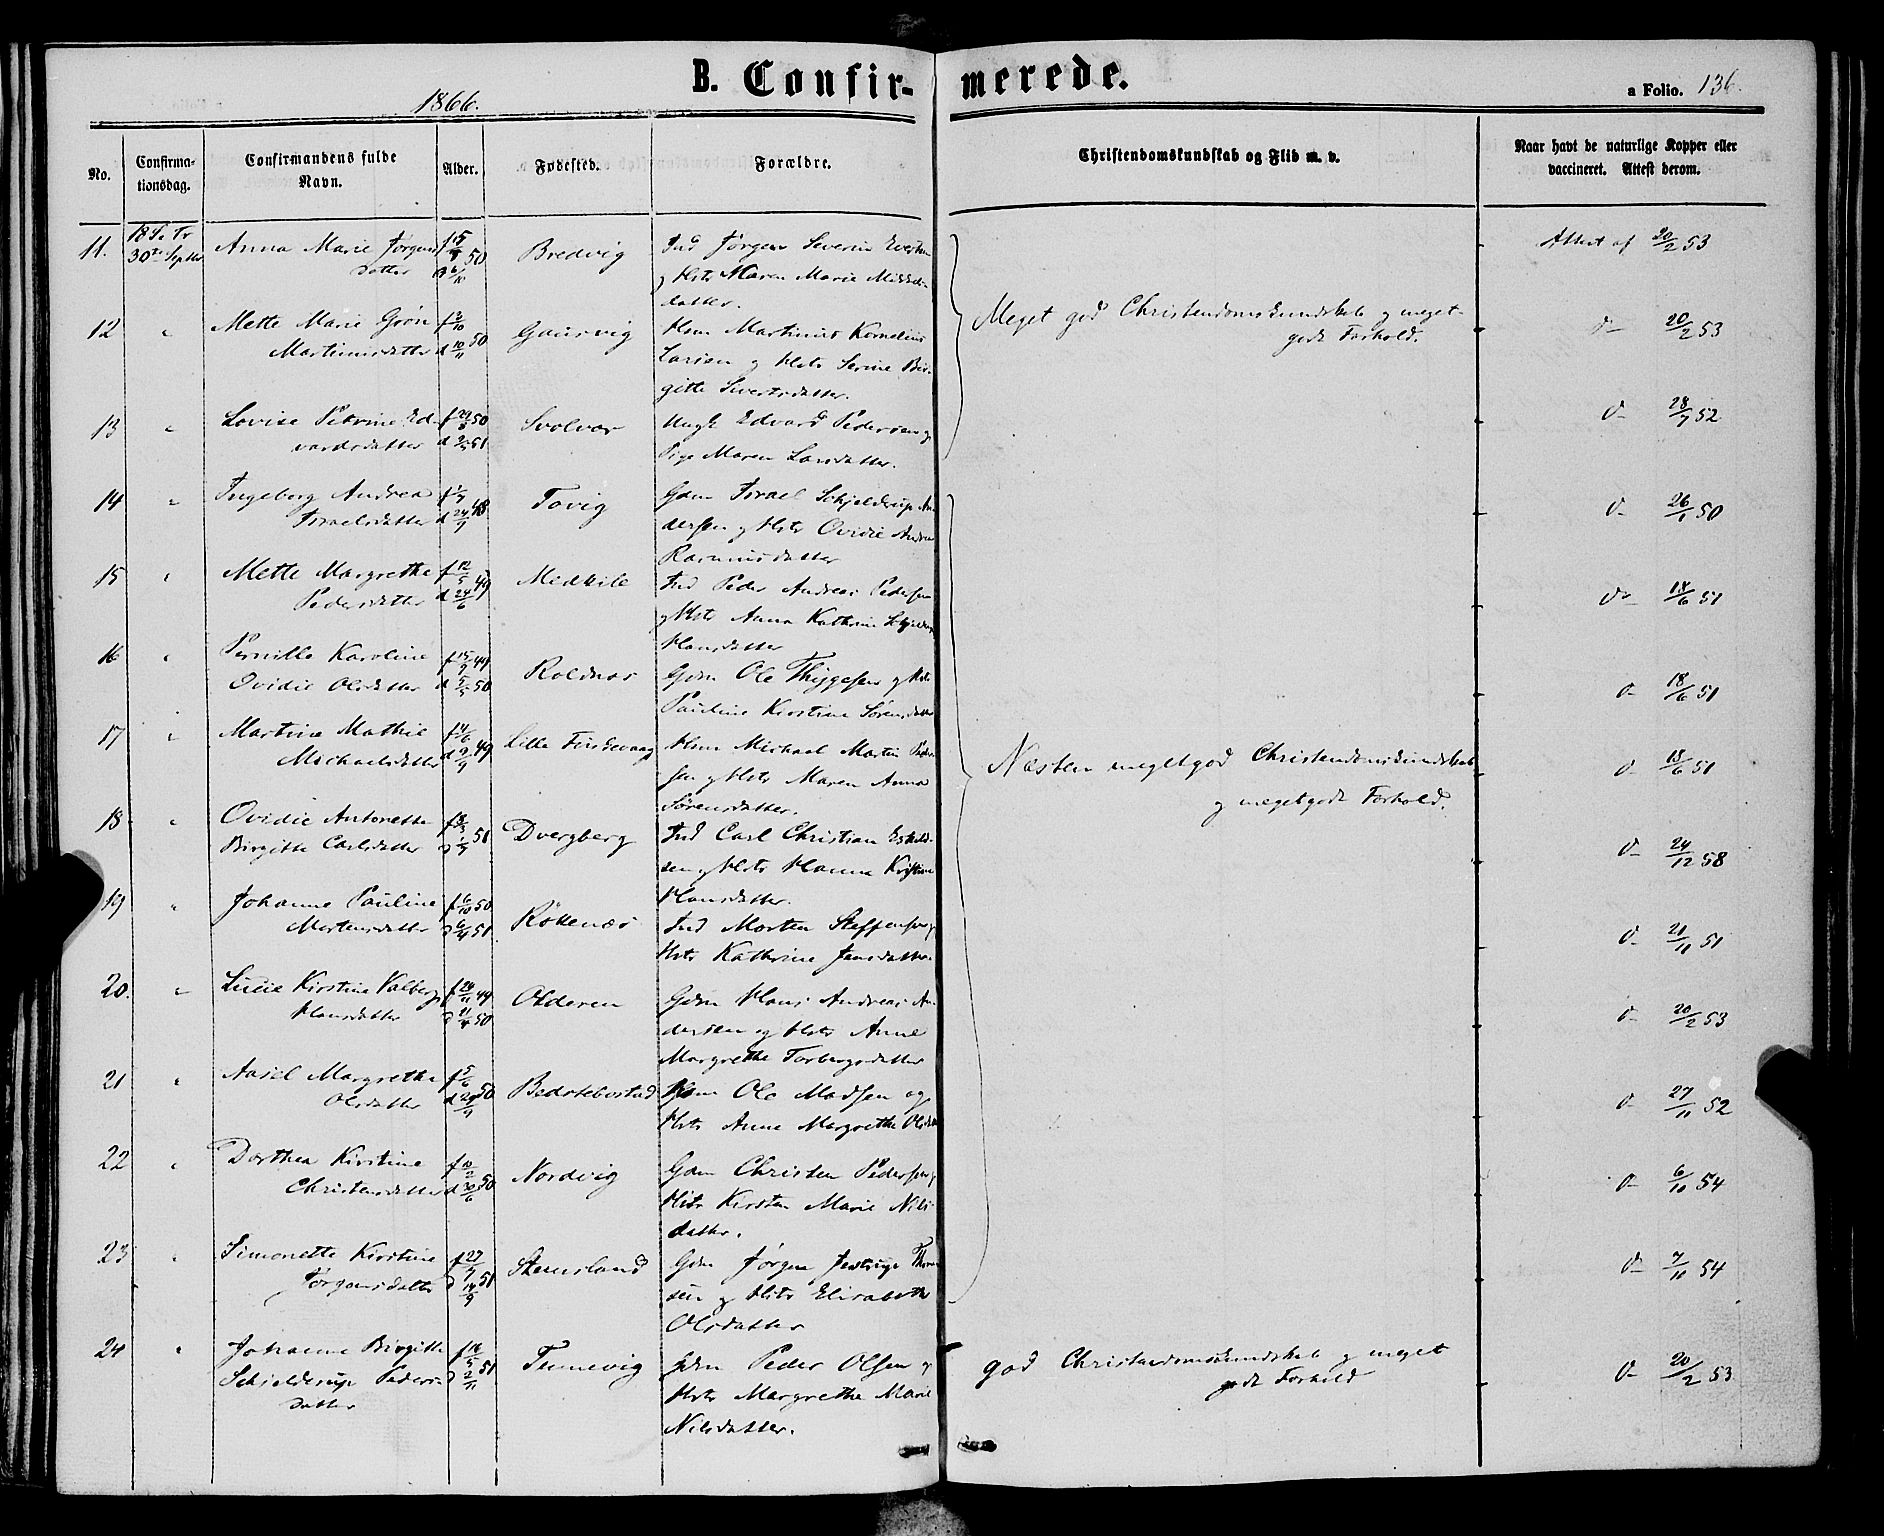 B. Confirmerede.
1866.
a Folio. 136.
No.
Confirmationsdag.
Confirmandens fulde Navn.
Alder.
Fødested.
Forældre.
Christendomskundskab og Flid m. v.
Naar havt de naturlige Kopper eller vaccineret. Attest derom.
11. 18 S. Tr 30te Septbr Anna Marie Jørgens
datter 50 Bredvig
Ind Jørgen Severin
og Hstr Maren Marie
datter.
Attest af 20/2 53
12 " Mette Marie Grøn
Martinusdatter 50 Gausvig
Hsm Martinus Kornelius
Larsen og Hstr Serine Bir-
gitte Sivertsdatter.
Meget god Christendomskundskab og meget
godt Forhold.
d- 20/2 53
13 " Lovise Petrine Ed-
vardsdatter 50 51 Svolvær
Ungk Edvard Pedersen og
Pige Maren Larsdatter.
d- 28/7 52
14 " Ingeborg Andrea
Israelsdatter 48 Tovig
Gdm Israel Schjelderup An-
dersen og Hstr Ovidie Andrea
Rasmusdatter
d- 26/1 50
15 " Mette Margrethe
Pedersdatter f 12/5 d 24/6 49 Medkile
Ind Peder Andreas Pedersen
og Hstr Anna Kathrine
Hansdatter
d- 18/6 51
16 " Pernille Karoline
Ovidie Olsdatter 49 50 Roldnæs
Gdm Ole Thiygesen og Hstr
Pauline Kirstine Sørensdatter
d- 18/6 51
17 " Martine Mathie
Michaelsdatter 49 Lille
Hsm Michael Martin Peder-
sen og Hstr Maren Anna
Sørensdatter.
Næsten meget god Christendomskundskab
og meget godt Forhold.
d- 18/6 51
18 " Ovidie Antonette
Birgitte Carlsdatter 51 Dvergberg
Ind Carl Christian
sen og Hstr Hanna Kristine
Hansdatter.
d- 24/12 58
19 " Johanne Pauline
Mortensdatter f 6/10 50 d 6/4 51 Røkenæs
Ind Morten Steffensen og
Hstr Kathrine Jensdatter.
d- 21/11 51
20. " Lucie Kirstine Valberg
Hansdatter 49 50 Olderen
Gdm Hans Andreas An-
dersen og Hstr Anne
Margrethe Torbergsdatter
d- 20/2 53
21 " Aasel Margrethe
Olsdatter 50
Hsm Ole Madsen og
Hstr Anne Margrethe Olsdatter
d- 27/11 52
22 " Dorthea Kirstine
Christensdatter f 10/2 d 30/6 50 Nordvig
Gdm Christen Pedersen og
Hstr Kirsten Marie Nils-
datter.
d- 6/10 54
23 " Simonette Kirstine
Jørgensdatter 51
Gdm Jørgen
sen og Hstr Elisabeth
Olsdatter
d- 7/10 54
24 " Johanne Birgitte
Schjelderup Peders-
datter 51 Tennevig
Gdm Peder Olsen og
Hstr Margrethe Marie
Nilsdatter.
god Christendomskundskab og meget
godt Forhold
d- 20/2 53